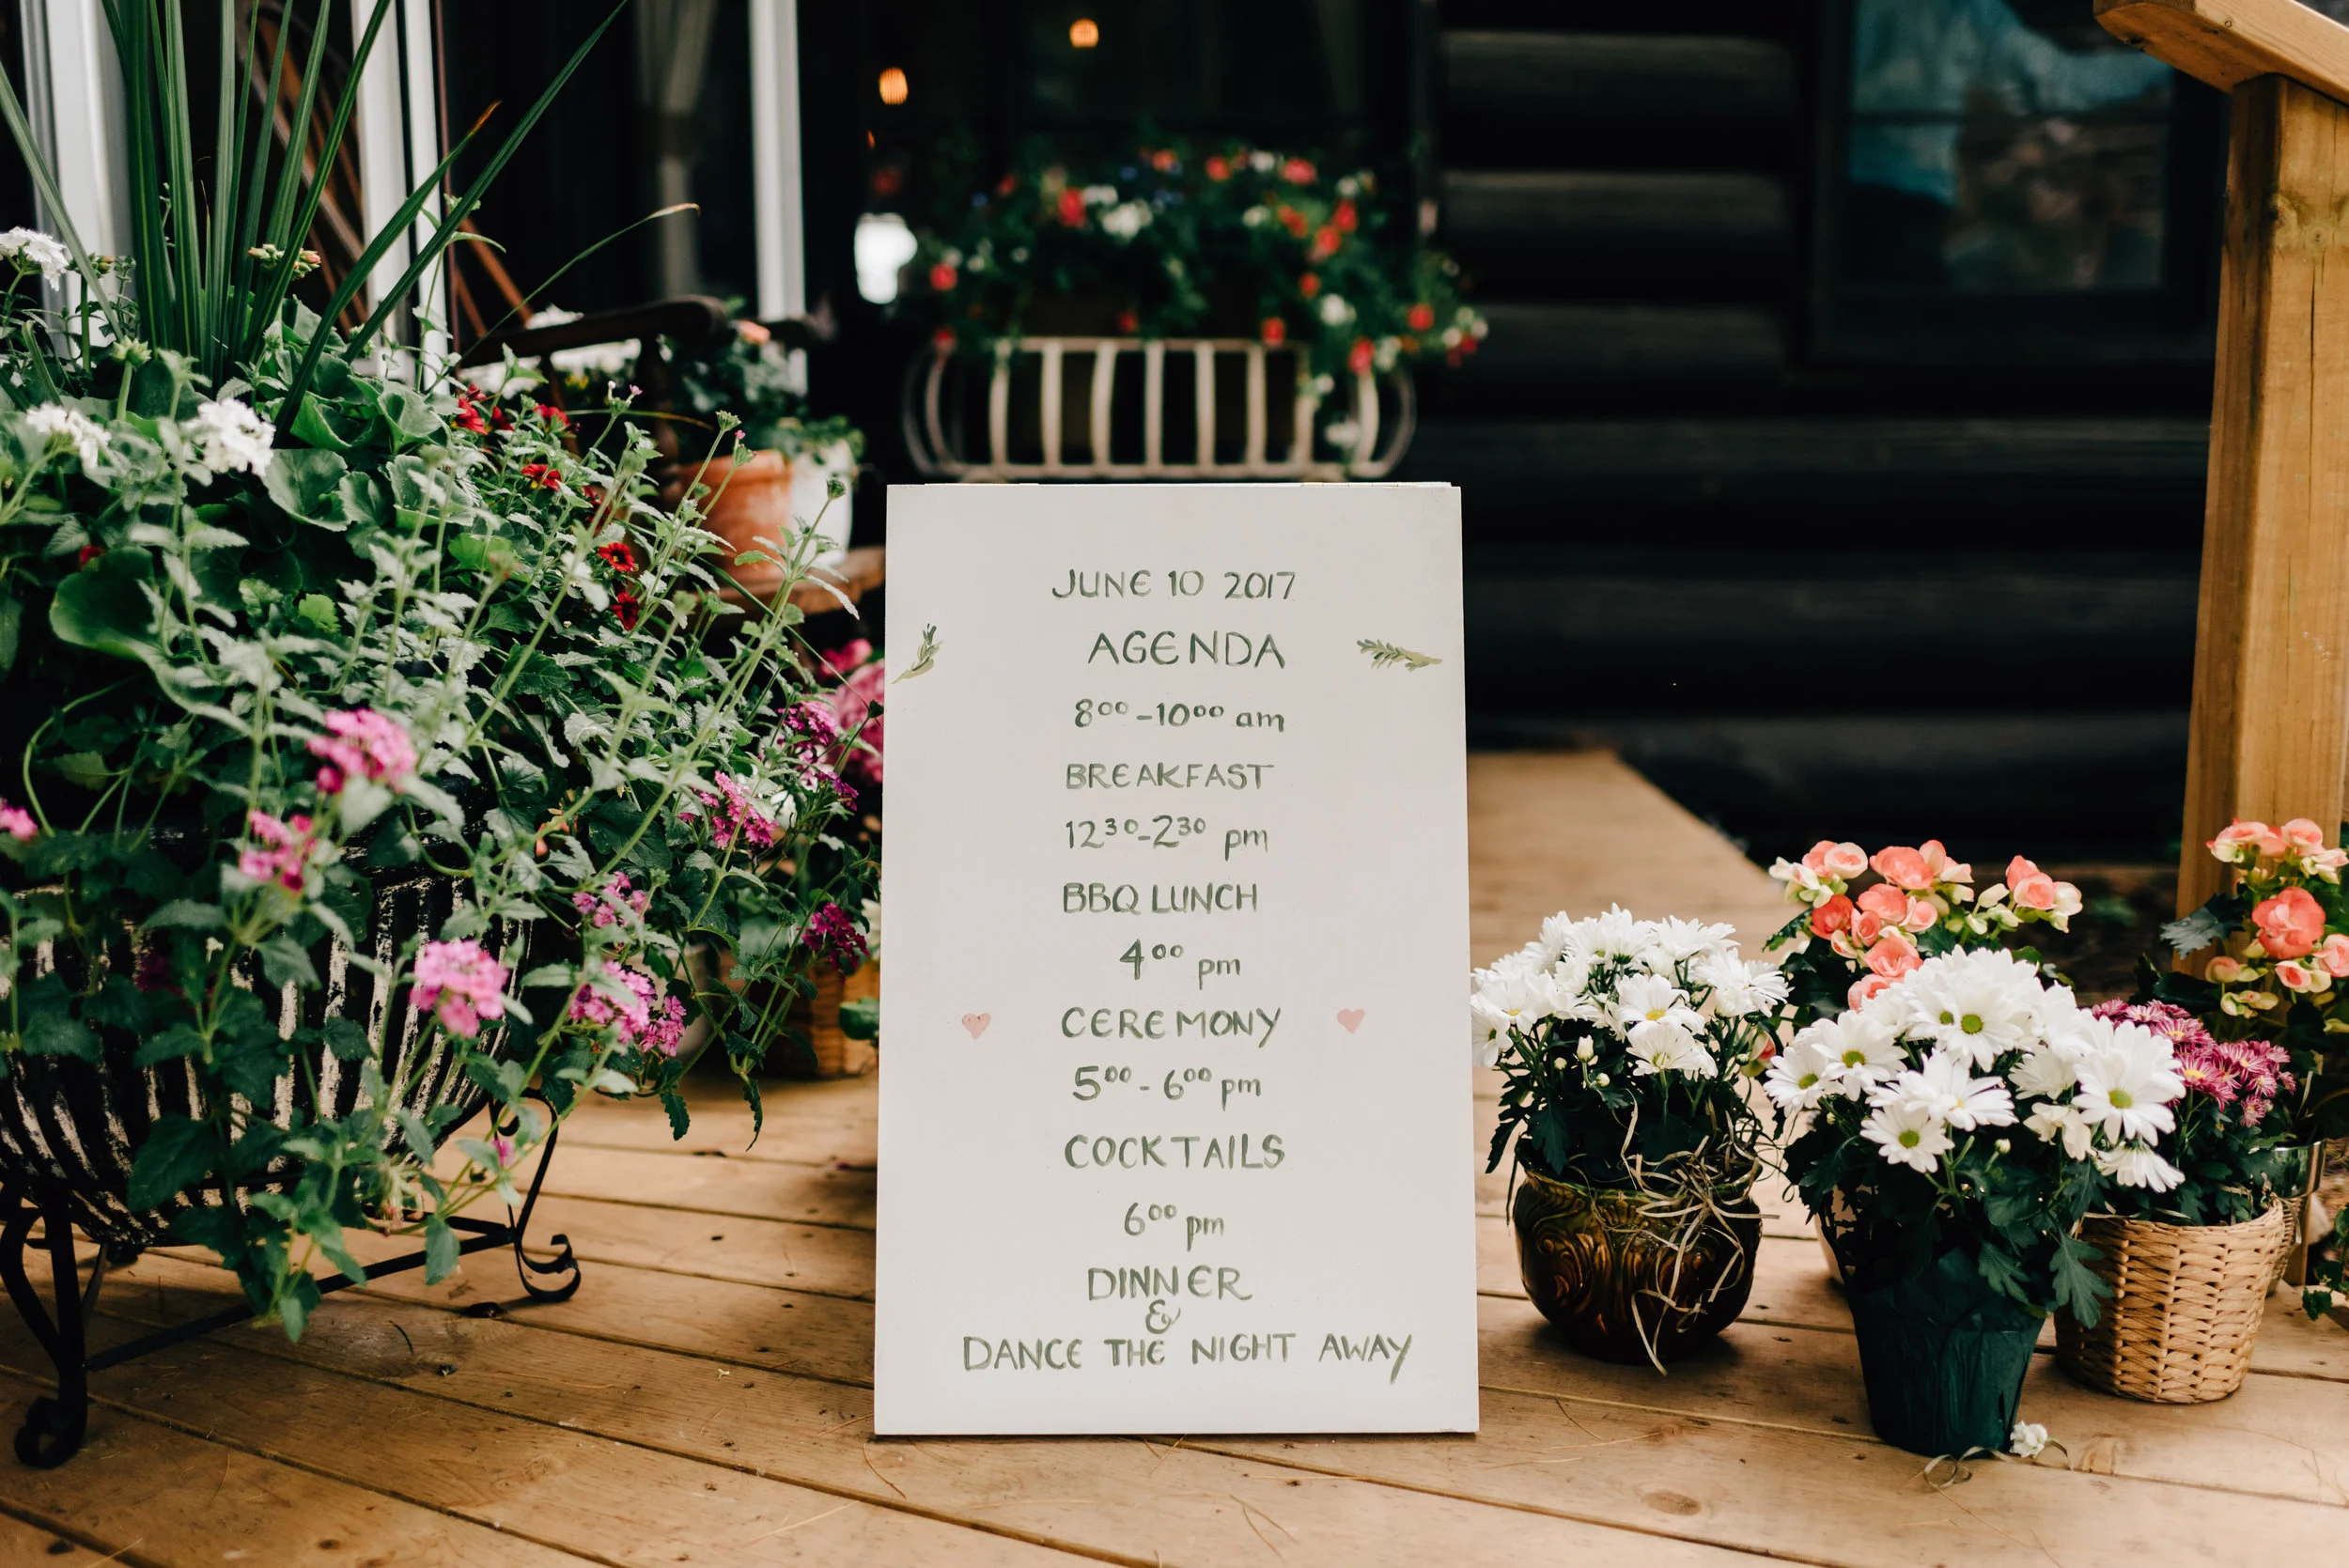 JUNE 10 2017
AGENDA
8⁰⁰-10⁰⁰ am
BREAKFAST
12³⁰-2³⁰ pm
BBQ LUNCH
4⁰⁰ pm
CEREMONY
5⁰⁰-6⁰⁰ pm
COCKTAILS
6⁰⁰ pm
DINNER
&
DANCE THE NIGHT AWAY